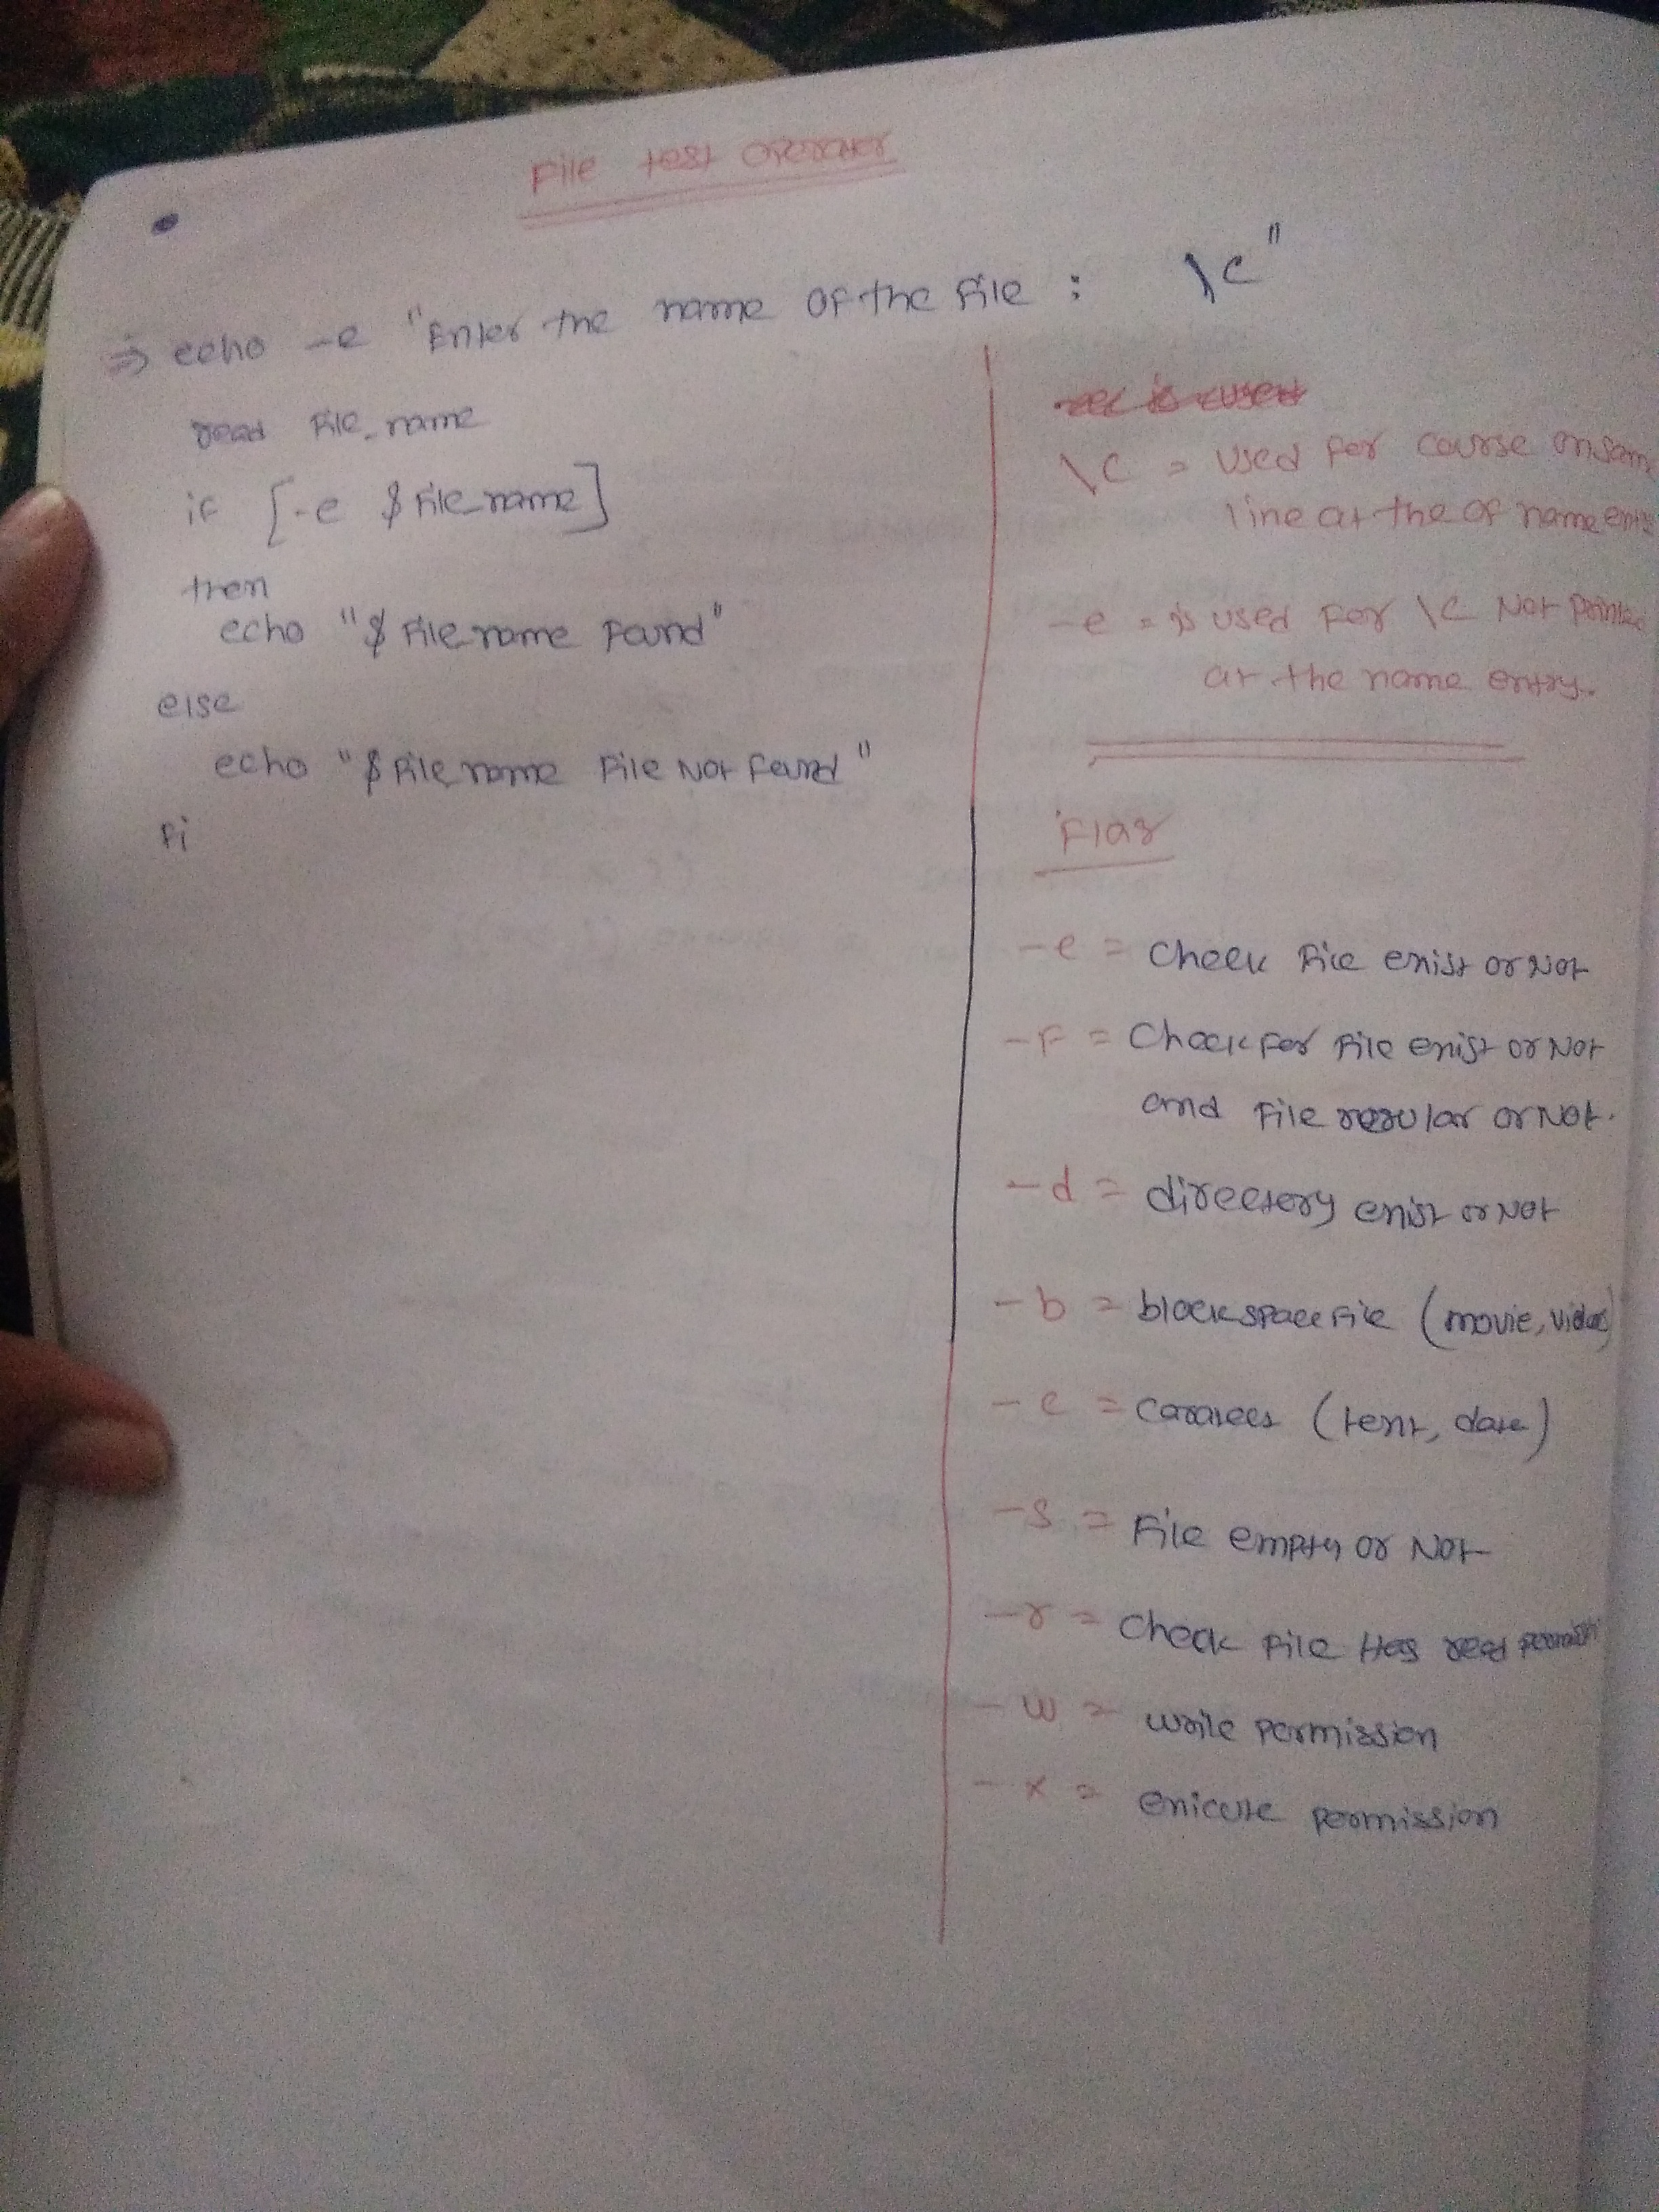 File test operator
⇒ echo -e "Enter the name of the file : \c"
read file_name
if [-e $file_name]
then
echo "$file_name found"
else
echo "$file_name file Not found"
fi
\c = used for course on same
line at the of name
-e = is used for \c Not printed
at the name entry.
Flag
-e = Check file exist or Not
-F = Check for file exist or Not
and file regular or Not.
-d = directory exist or Not
-b = block space file (movie, video)
-c = (text, date)
-s = File empty or Not
-r = Check file Has read
-w = write permission
-x = enicute permission